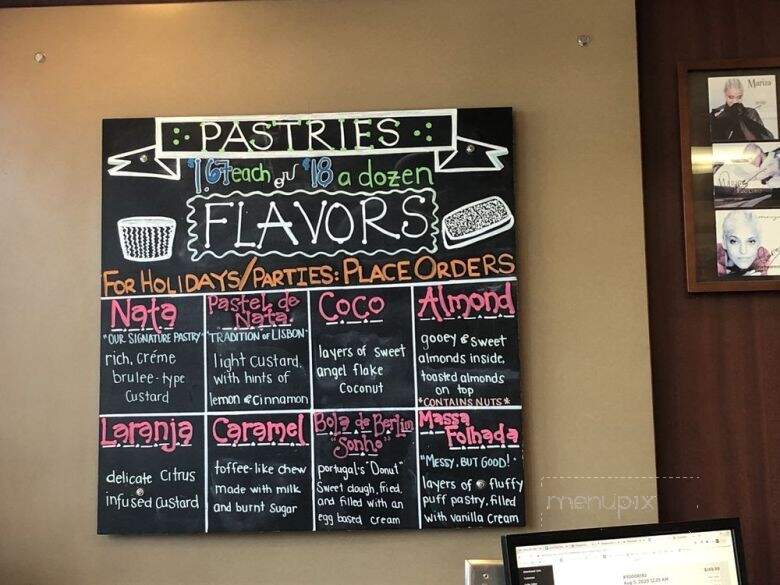 PASTRIES
$1.67 each or $18 a dozen
FLAVORS
FOR HOLIDAYS/PARTIES: PLACE ORDERS
Nata
"OUR SIGNATURE PASTRY"
rich, créme
brulee-type
Custard
Pastel de
Nata
"TRADITION of LISBON"
light custard,
with hints of
lemon & Cinnamon
COCO
layers of sweet
angel flake
Coconut
Almond
gooey & sweet
almonds inside,
toasted almonds
on top
*CONTAINS NUTS*
Laranja
delicate Citrus
infused Custard
Caramel
toffee-like chew
made with milk
and burnt Sugar
Bola de Berlin
"Sonho"
portugal's "Donut"
Sweet dough, fried,
and filled with an
egg based cream
Massa
Folhada
"MESSY, BUT GOOD!"
layers of fluffy
puff pastry, filled
with vanilla cream
Mariza
menupix